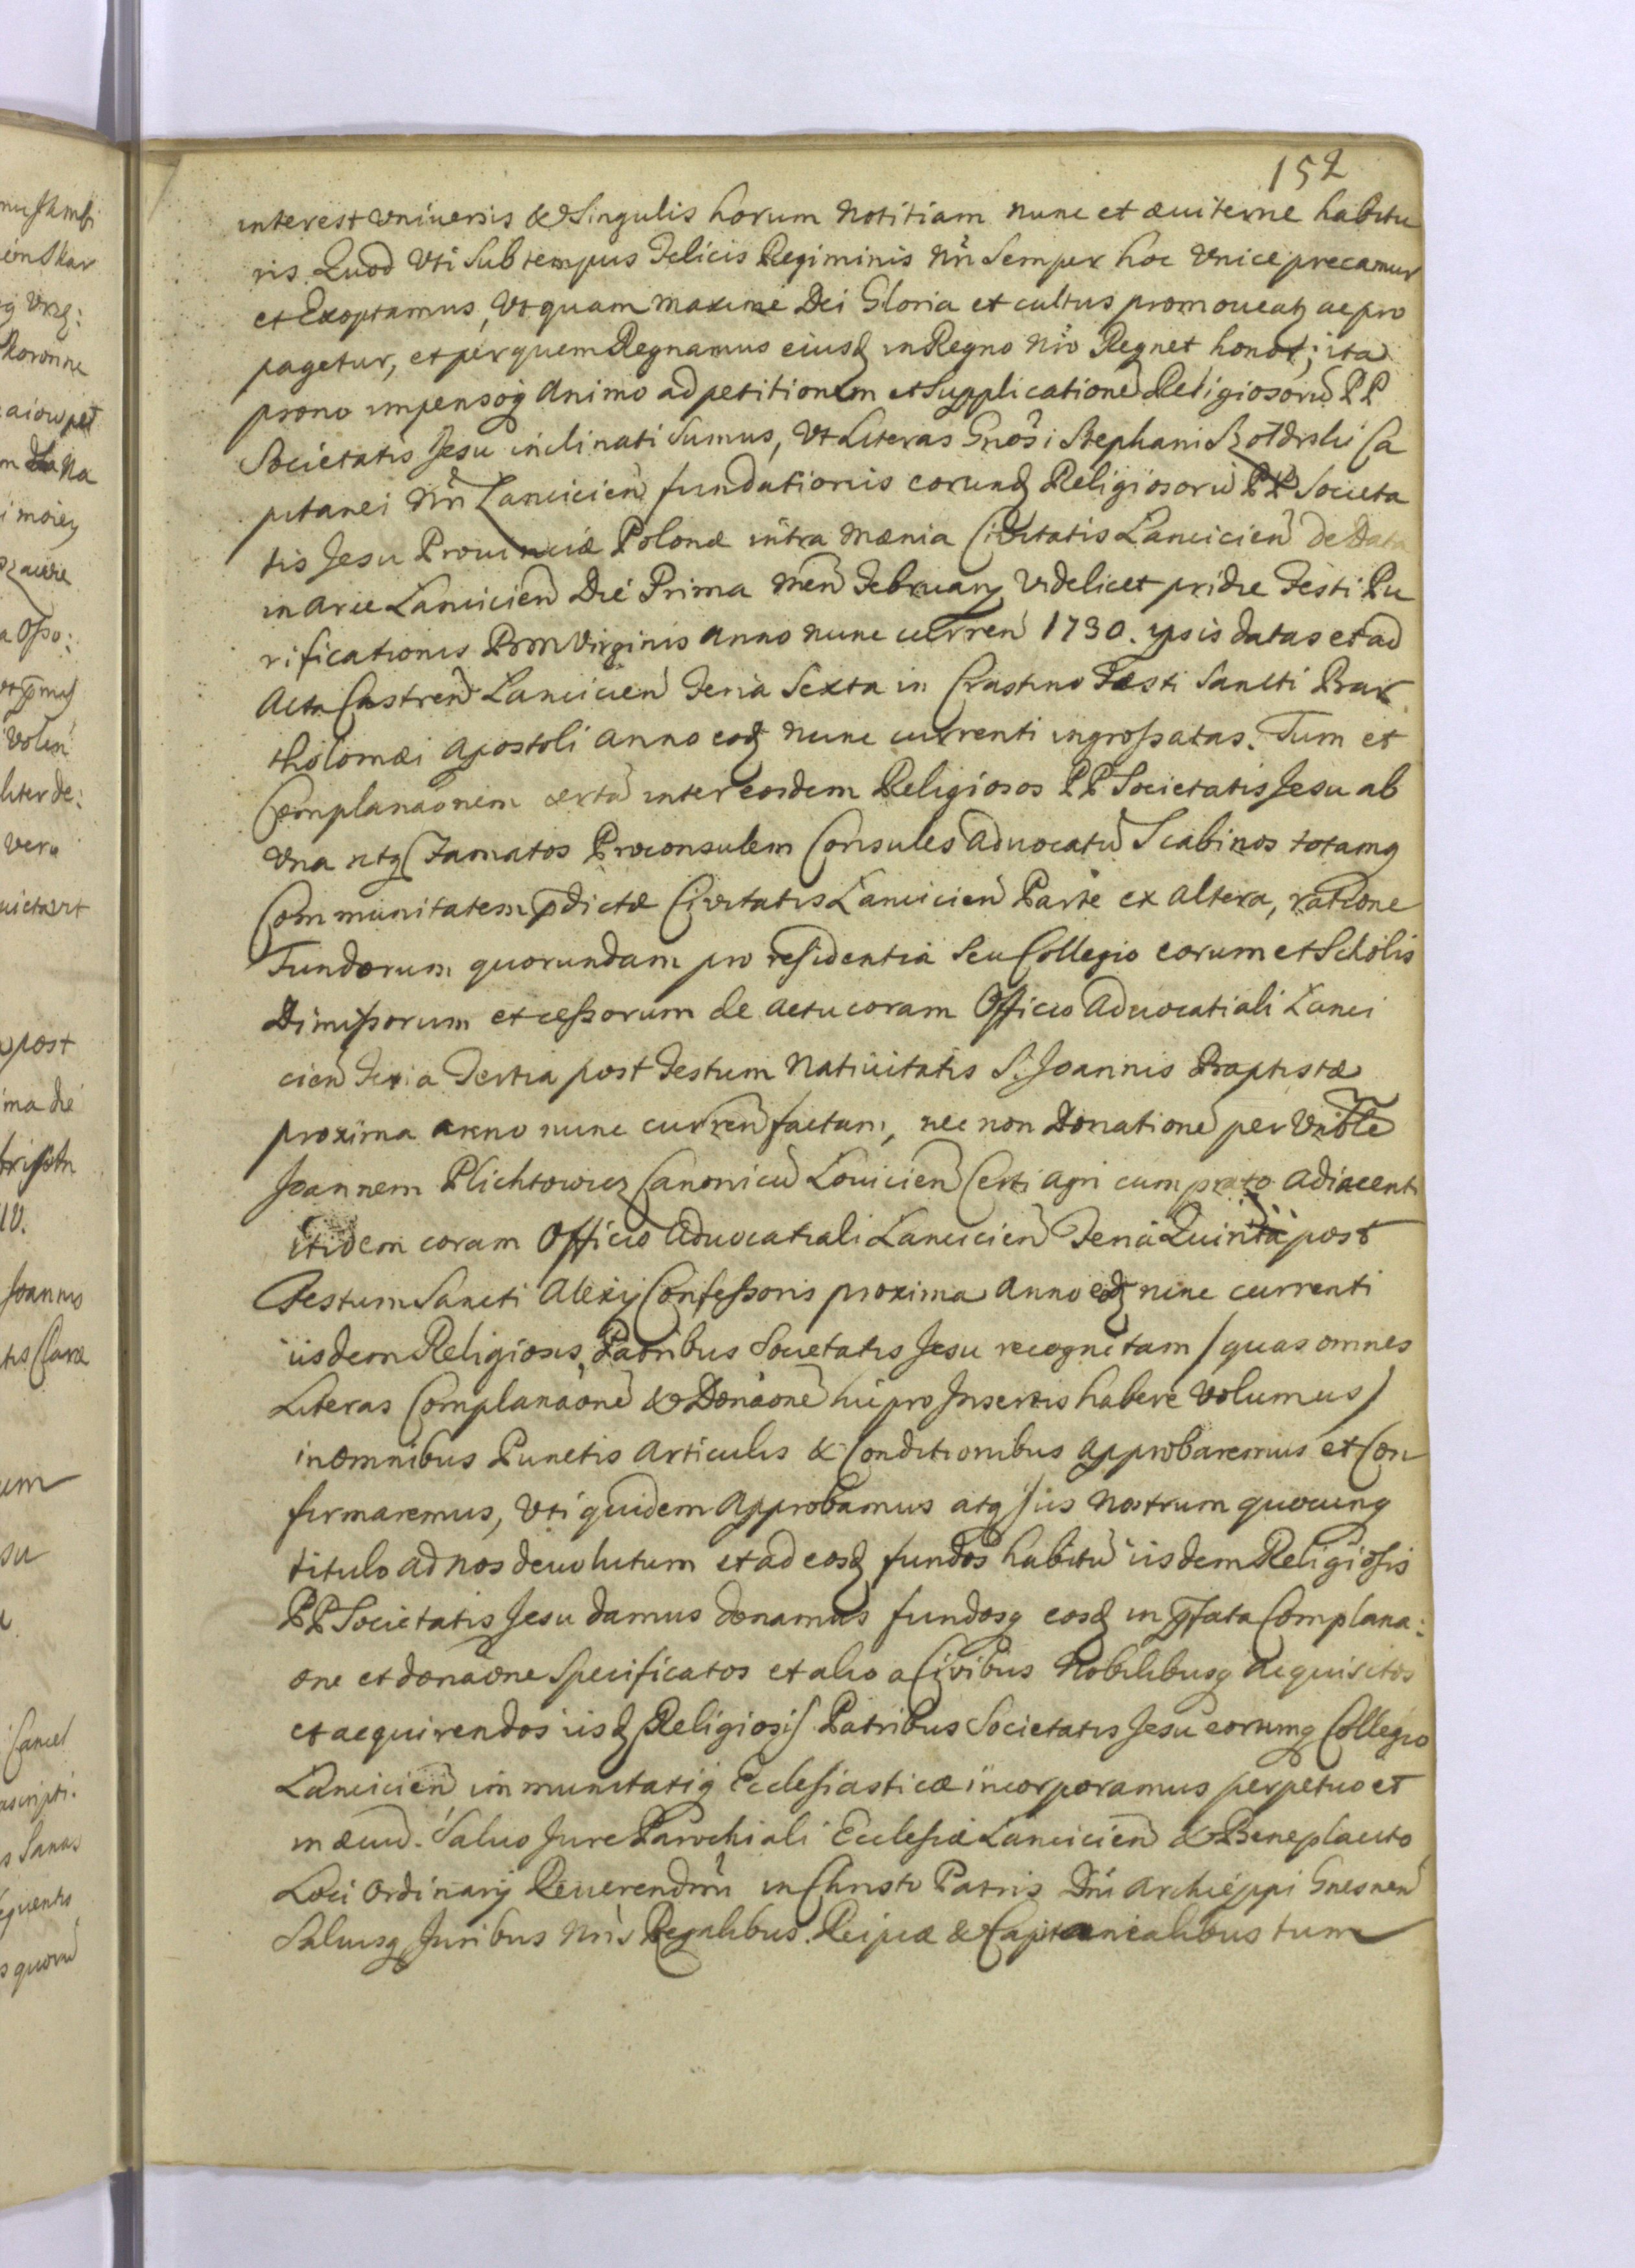 152
interest vniversis & Singulis horum notitiam nunc et æuiterne habitu
ris. Quod Vti Sub tempus Felicis Regiminis Nri Semper hoc Vnice precamur
et Exoptamus, Vt quam maxime Dei Gloria et cultus promoueatq ac pro
pagetur, et per quem Regnamus eiusq in Regno Nro Regnet honor; ita
prono impensoq animo ad petitionem et Supplicatione Religiosoru PP
Societatis Jesu inclinati Sumus, Vt Literas Gnosi Stephani Szołdrski Ca
pitanei Nri Lancicien fundationis eorunq Religiosoru PP Societa
tis Jesu Prouinciæ Polonæ intra mænia Civitatis Lancicien de Data
in arce Lancicien Die Prima Men February Videlicet pridie Festi Pu
rificationis BmVirginis anno nunc curren 1730. ipsis datas et ad
Acta Castren Lancicien Feria Sexta in Crastino Fæsti Sancti Bar
tholomæi Apostoli anno eoq nunc currenti ingrossatas. Tum et
Complanaonem certa inter eosdem Religiosos PP Societatis Jesu ab
Vna atq Famatos Proconsulem Consules Aduocatu Scabinos totamq
Communitatem pdictæ Civitatis Lancicien Parte ex altera, ratione
Fundorum quorundam pro residentia Seu Collegio eorum et Scholis
Dimissorum et cessorum de actu coram Officio Aduocatiali Lanci
cien Feria Tertia post Festum Natiuitatis S. Joannis Baptistæ
proxima anno nunc curren factam, nec non Donatione per Vnble
Joannem Plichtowicz Canonicu Louicien Certi Agri cum prato adiacenti
itidem coram Officio Aduocatiali Lancicien Feria Quinta post
Festum Sancti Alexij Confessoris proxima Anno eoq nunc currenti
iisdem Religiosis Patribus Societatis Jesu recognitam / quas omnes
Literas Complanaone & Donaone hic pro Insertis habere Volumus /
in omnibus Punctis Articulis & Conditionibus Approbaremus et Con
firmaremus, Vti quidem Approbamus atq Jus Nostrum quocunq
titulo ad nos deuolutum et ad eosq fundos habitu iisdem Religiosis
PP Societatis Jesu damus donamus fundosq eosq in pfata Complana:
one et donaone Specificatos et alio a Civibus Nobilibusq acquisitos
et acquirendos iisq Religiosis Patribus Societatis Jesu eorumq Collegio
Lancicien immunitatiq Ecclesiasticæ incorporamus perpetuo et
in æuu. Saluo Jure Parochiali Ecclesiæ Lancicien & Beneplacito
Loci Ordinarij Reuerendmi in Christo Patris Dni Archieppi Gnesnen
Saluisq Juribus Nris Regalibus. Reipcæ & Capitanealibus tum